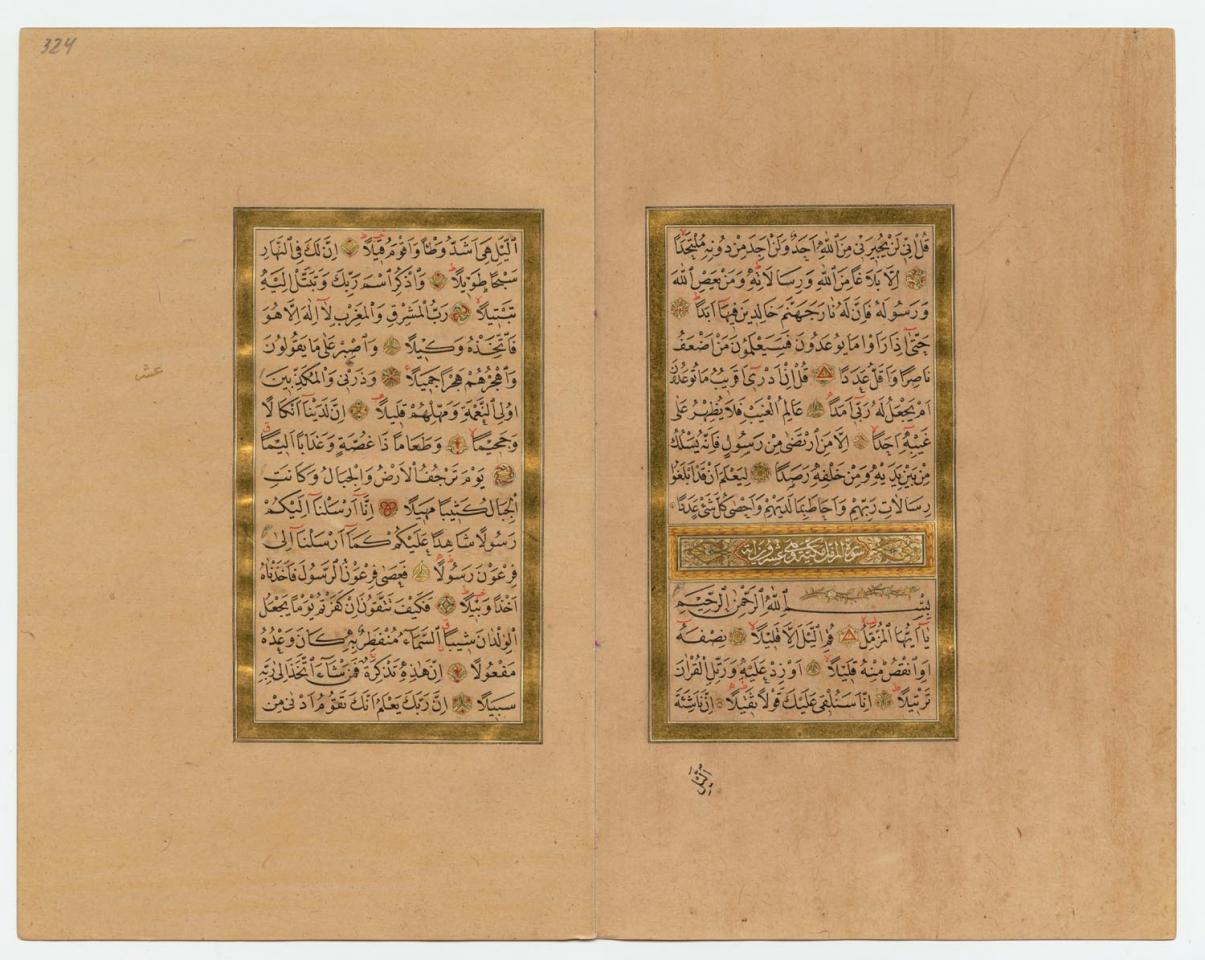 قُلْ اِنّٖى لَنْ يُجٖيرَنٖى مِنَ اللّٰهِ اَحَدٌ وَلَنْ اَجِدَ مِنْ دُونِهٖ مُلْتَحَدًا
اِلَّا بَلَاغًا مِنَ اللّٰهِ وَرِسَالَاتِهٖ وَمَنْ يَعْصِ اللّٰهَ
وَرَسُولَهُ فَاِنَّ لَهُ نَارَ جَهَنَّمَ خَالِدٖينَ فٖيهَا اَبَدًا
حَتّٰى اِذَا رَاَوْا مَا يُوعَدُونَ فَسَيَعْلَمُونَ مَنْ اَضْعَفُ
نَاصِرًا وَاَقَلُّ عَدَدًا قُلْ اِنْ اَدْرٖى اَقَرٖيبٌ مَا تُوعَدُونَ
اَمْ يَجْعَلُ لَهُ رَبّٖى اَمَدًا عَالِمُ الْغَيْبِ فَلَا يُظْهِرُ عَلٰى
غَيْبِهٖ اَحَدًا اِلَّا مَنِ ارْتَضٰى مِنْ رَسُولٍ فَاِنَّهُ يَسْلُكُ
مِنْ بَيْنِ يَدَيْهِ وَمِنْ خَلْفِهٖ رَصَدًا لِيَعْلَمَ اَنْ قَدْ اَبْلَغُوا
رِسَالَاتِ رَبِّهِمْ وَاَحَاطَ بِمَا لَدَيْهِمْ وَاَحْصٰى كُلَّ شَىْءٍ عَدَدًا
سورة المزمل مكية وهى عشرون اية
بِسْمِ اللّٰهِ الرَّحْمٰنِ الرَّحٖيمِ
يَا اَيُّهَا الْمُزَّمِّلُ قُمِ الَّيْلَ اِلَّا قَلٖيلًا نِصْفَهُ
اَوِ انْقُصْ مِنْهُ قَلٖيلًا اَوْ زِدْ عَلَيْهِ وَرَتِّلِ الْقُرْاٰنَ
تَرْتٖيلًا اِنَّا سَنُلْقٖى عَلَيْكَ قَوْلًا ثَقٖيلًا اِنَّ نَاشِئَةَ
الَّيْلِ
324
الَّيْلِ هِىَ اَشَدُّ وَطْـًٔا وَاَقْوَمُ قٖيلًا اِنَّ لَكَ فِى النَّهَارِ
سَبْحًا طَوٖيلًا وَاذْكُرِ اسْمَ رَبِّكَ وَتَبَتَّلْ اِلَيْهِ
تَبْتٖيلًا رَبُّ الْمَشْرِقِ وَالْمَغْرِبِ لَا اِلٰهَ اِلَّا هُوَ
فَاتَّخِذْهُ وَكٖيلًا وَاصْبِرْ عَلٰى مَا يَقُولُونَ
وَاهْجُرْهُمْ هَجْرًا جَمٖيلًا وَذَرْنٖى وَالْمُكَذِّبٖينَ
اُولِى النَّعْمَةِ وَمَهِّلْهُمْ قَلٖيلًا اِنَّ لَدَيْنَا اَنْكَالًا
وَجَحٖيمًا وَطَعَامًا ذَا غُصَّةٍ وَعَذَابًا اَلٖيمًا
يَوْمَ تَرْجُفُ الْاَرْضُ وَالْجِبَالُ وَكَانَتِ
الْجِبَالُ كَثٖيبًا مَهٖيلًا اِنَّا اَرْسَلْنَا اِلَيْكُمْ
رَسُولًا شَاهِدًا عَلَيْكُمْ كَمَا اَرْسَلْنَا اِلٰى
فِرْعَوْنَ رَسُولًا فَعَصٰى فِرْعَوْنُ الرَّسُولَ فَاَخَذْنَاهُ
اَخْذًا وَبٖيلًا فَكَيْفَ تَتَّقُونَ اِنْ كَفَرْتُمْ يَوْمًا يَجْعَلُ
الْوِلْدَانَ شٖيبًا اَلسَّمَاءُ مُنْفَطِرٌ بِهٖ كَانَ وَعْدُهُ
مَفْعُولًا اِنَّ هٰذِهٖ تَذْكِرَةٌ فَمَنْ شَاءَ اتَّخَذَ اِلٰى رَبِّهٖ
سَبٖيلًا اِنَّ رَبَّكَ يَعْلَمُ اَنَّكَ تَقُومُ اَدْنٰى مِنْ
عشر